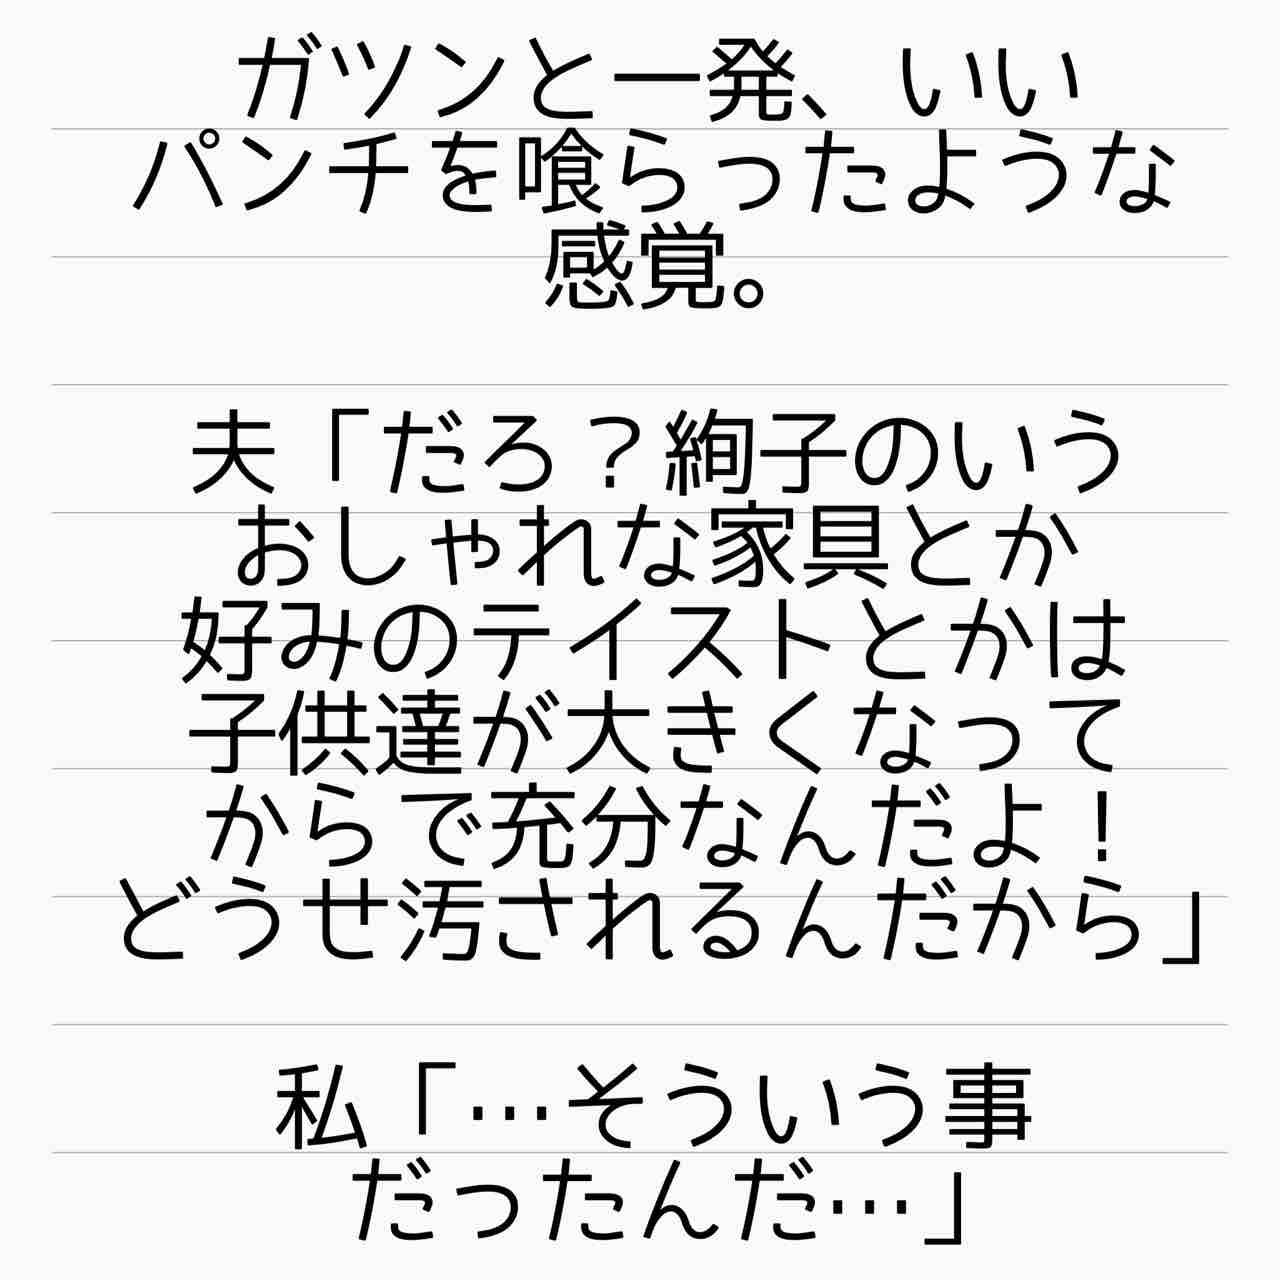 ガツンと一発、いい
パンチを喰らったような
感覚。
夫「だろ？絢子のいう
おしゃれな家具とか
好みのテイストとかは
子供達が大きくなって
からで充分なんだよ！
どうせ汚されるんだから」
私「…そういう事
だったんだ…」